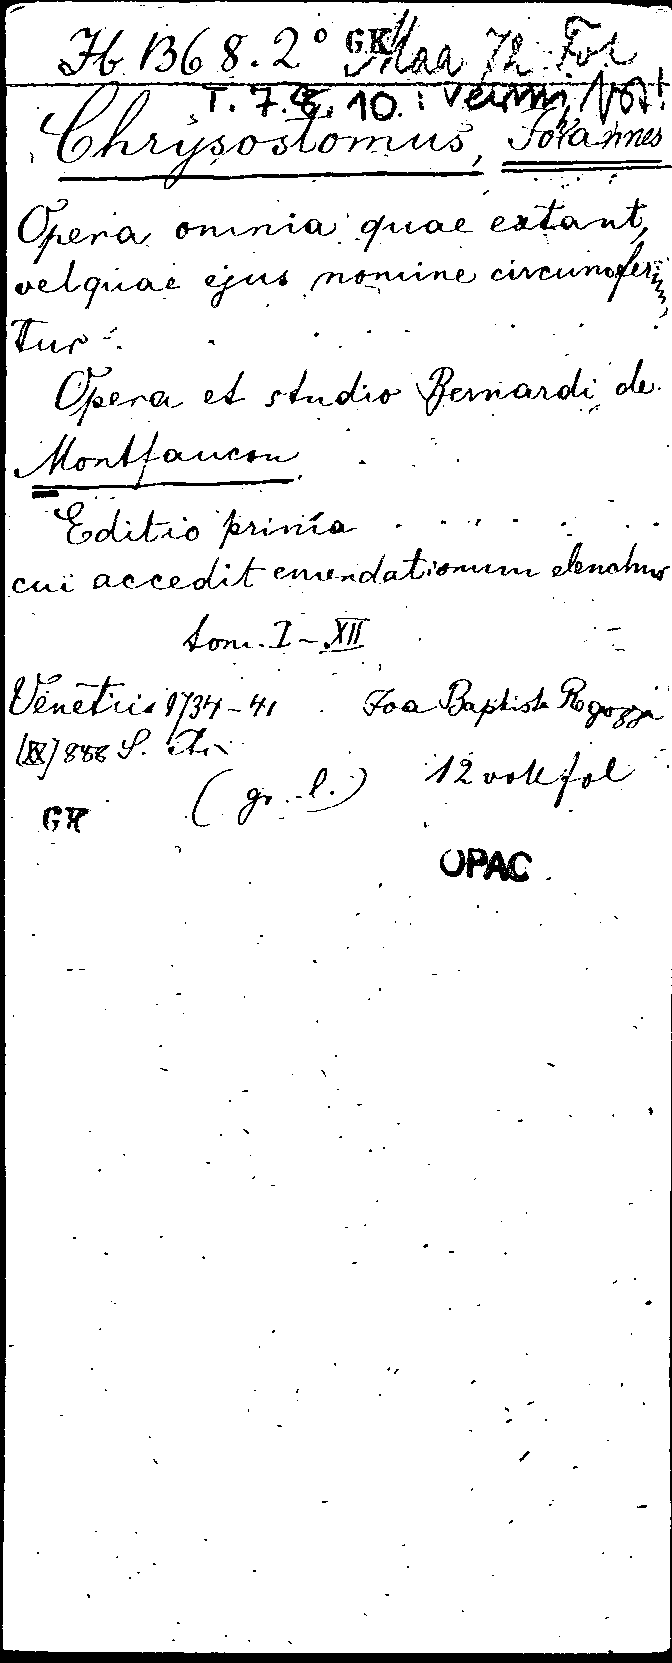 Hb B68.2° GK Maa 72 Fol
T. 7. 8. 10.:
Chrysostomus, Johannes
Opera omnia quae extant,
vel quae ejus nomine circumferun
tur
Opera et studio Bernardi de
Montfaucon
Editio prima
cui accedit emendationum elenchus
tom. I-XII
Venetiis 1734-41 Joa Baptista
888 S.
(gr. l.) 12 vol fol
GK
OPAC